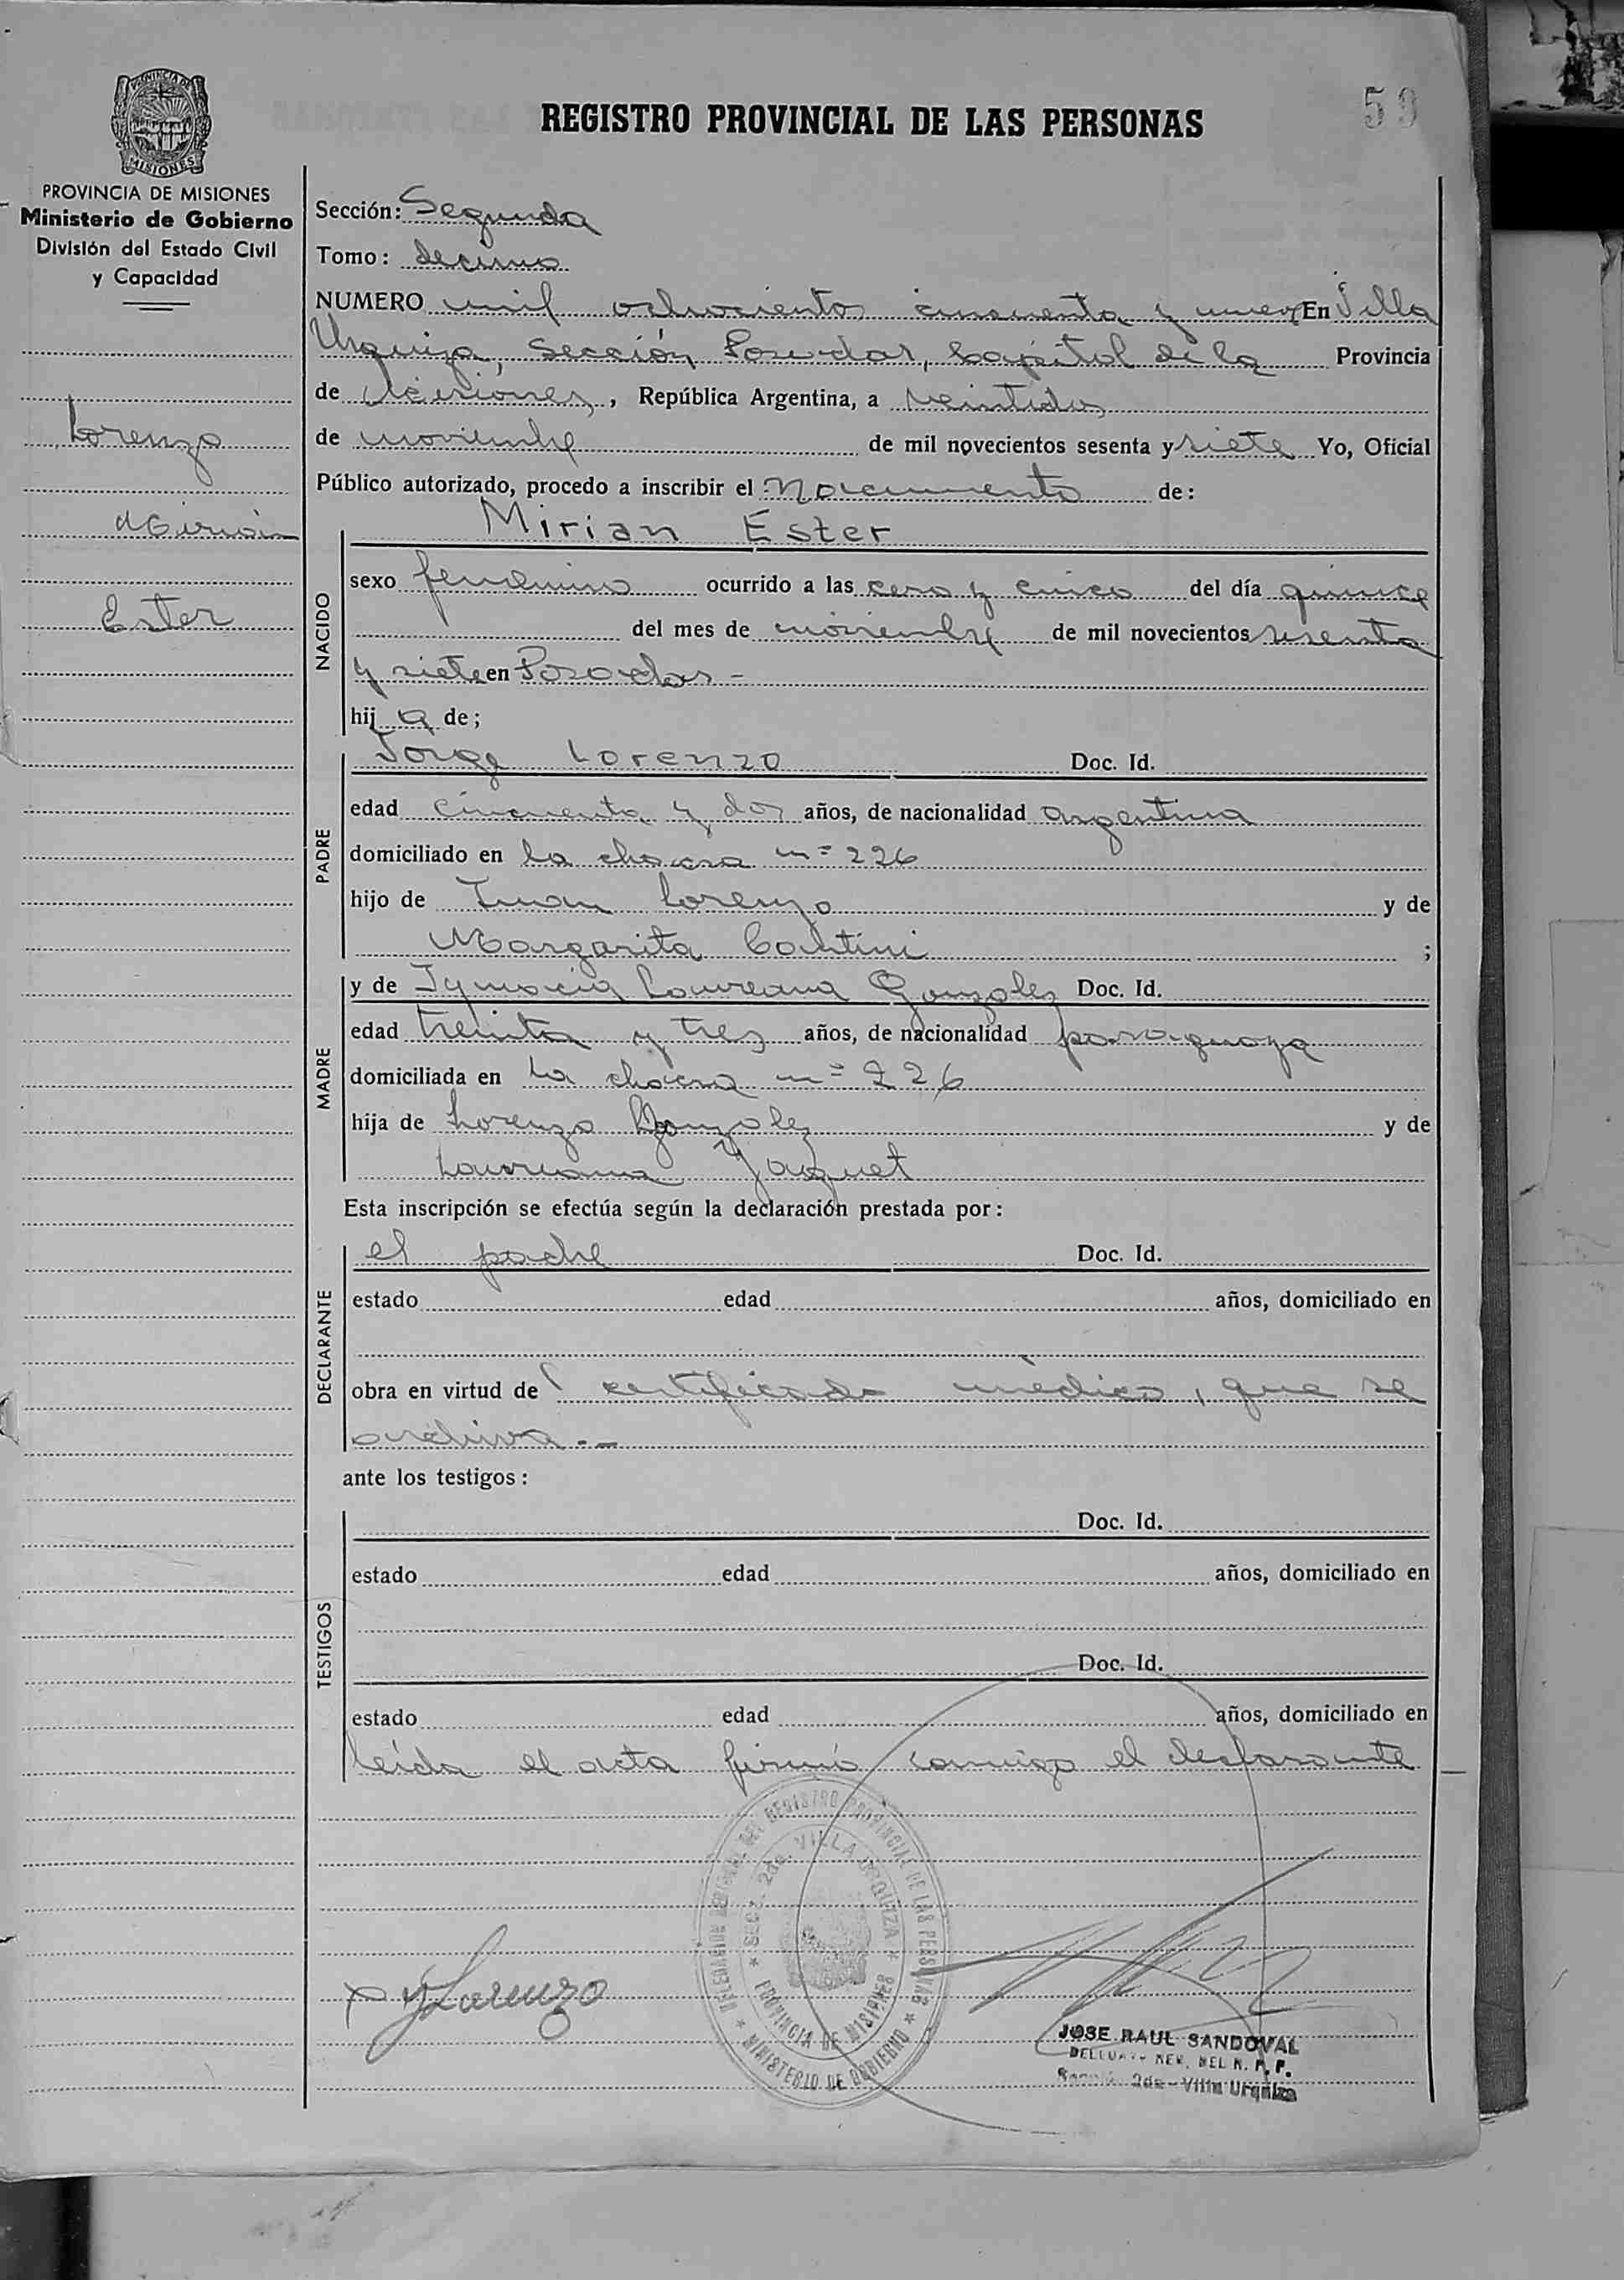 59
REGISTRO PROVINCIAL DE LAS PERSONAS
MISIONES
PROVINCIA DE MISIONES
Ministerio de Gobierno
División del Estado Civil
y Capacidad
Lorenzo
Mirian
Ester
Sección: Segunda
Tomo: decimo
NUMERO mil ochocientos cincuenta y nueve En Villa
Urquiza, Sección Posadas, Capital de la Provincia
de Misiones, República Argentina, a veintidos
de noviembre de mil novecientos sesenta y siete Yo, Oficial
Público autorizado, procedo a inscribir el Nacimiento de:
Mirian Ester
NACIDO
sexo femenino ocurrido a las cero y cinco del día quince
del mes de noviembre de mil novecientos sesenta
y siete en Posadas -
hij a de;
PADRE
Jorge Lorenzo Doc. Id.
edad cincuenta y dos años, de nacionalidad argentina
domiciliado en la chacra nº 226
hijo de Juan Lorenzo y de
Margarita ;
MADRE
y de Ignacia Laureana Gonzalez Doc. Id.
edad treinta y tres años, de nacionalidad paraguaya
domiciliada en La chacra nº 226
hija de Lorenzo Gonzalez y de
Laureana
Esta inscripción se efectúa según la declaración prestada por:
DECLARANTE
el padre Doc. Id.
estado edad años, domiciliado en
obra en virtud de certificado médico, que se
archiva.--
ante los testigos:
TESTIGOS
Doc. Id.
estado edad años, domiciliado en
Doc. Id.
estado edad años, domiciliado en
leída el acta firmó conmigo el declarante
DEL REGISTRO PROVINCIAL DE LAS PERSONAS
* MINISTERIO DE GOBIERNO *
* SECC. 2da. VILLA URQUIZA *
PROVINCIA DE MISIONES
Lorenzo
JOSE RAUL SANDOVAL
DEL R. P. P.
2da - Villa Urquiza